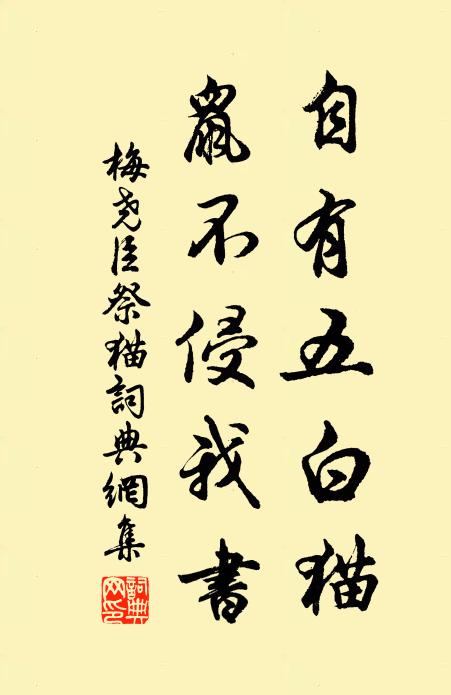 自有五白猫
鼠不侵我書
梅尧臣祭猫詞典網集
詞典網印